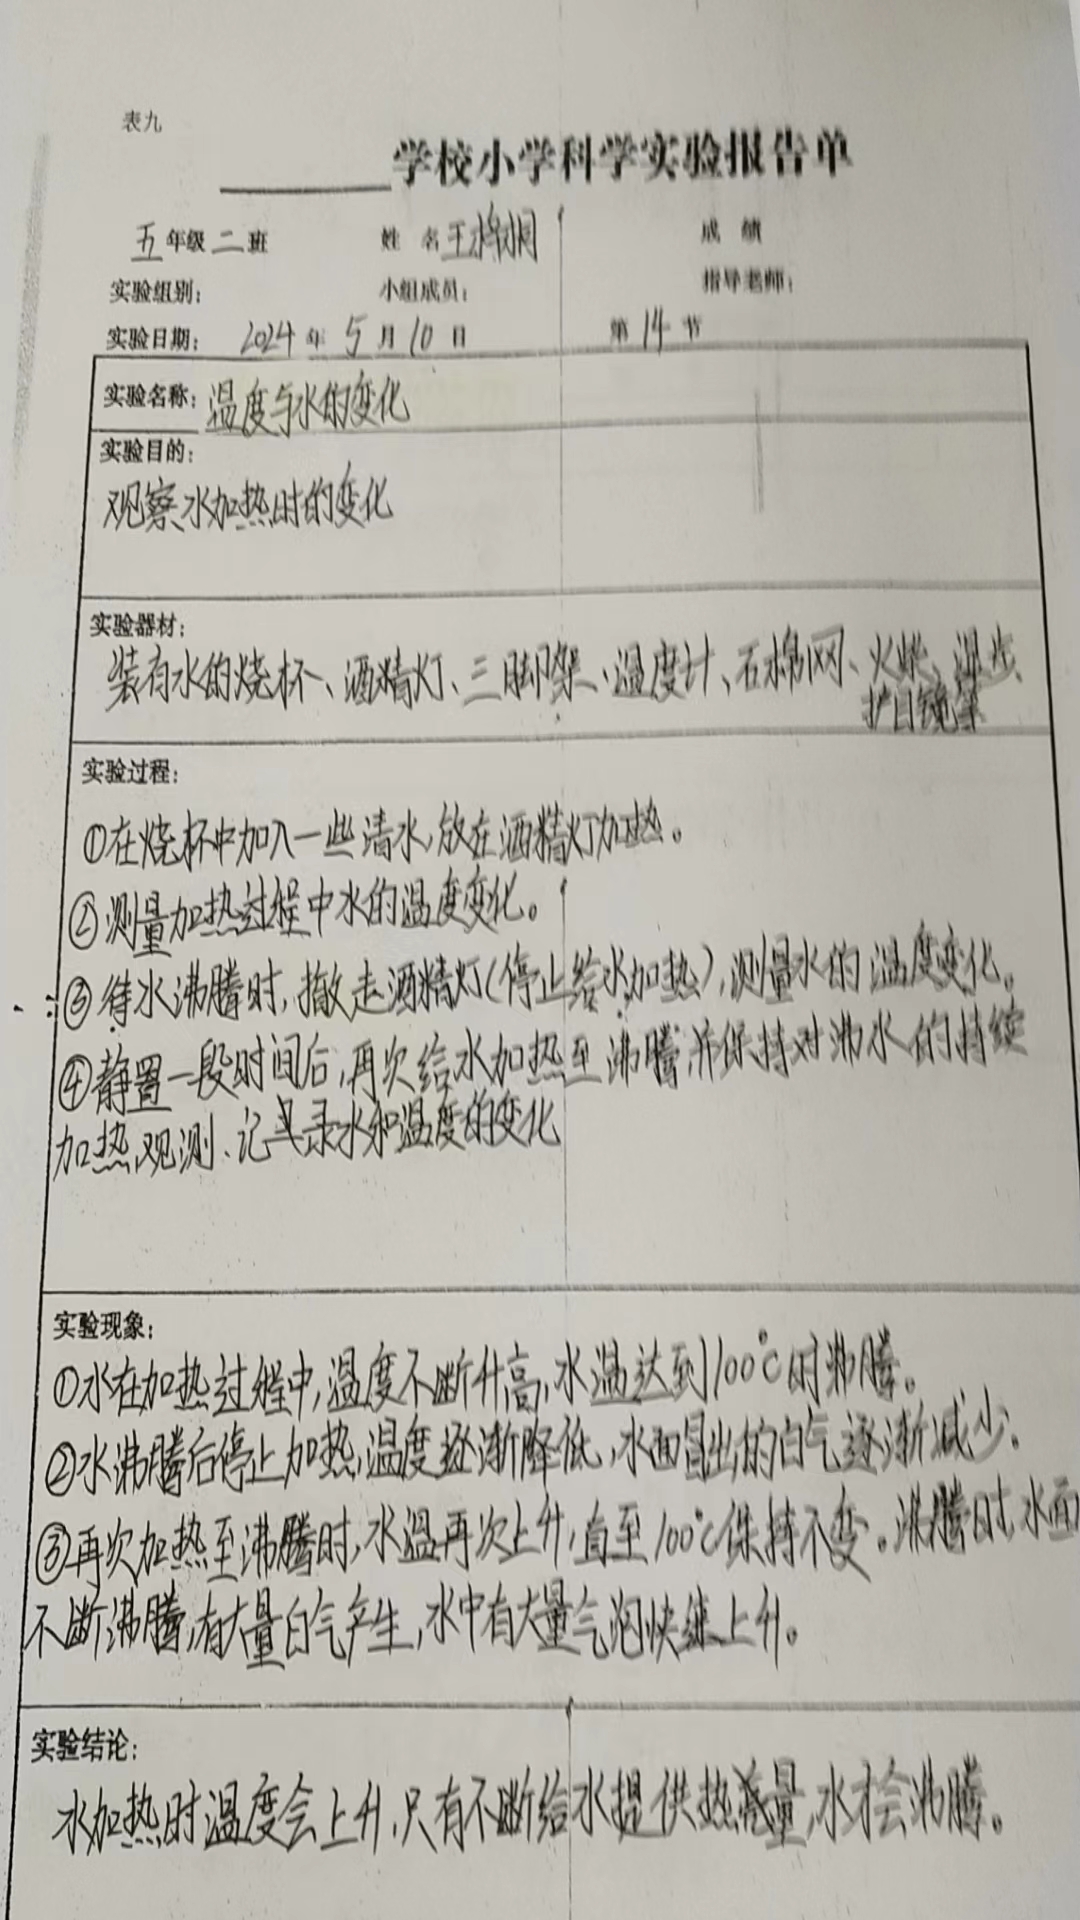 表九
学校小学科学实验报告单
五年级二班 姓 名 王 成 绩
实验组别: 小组成员: 指导老师:
实验日期: 2024年5月10日 第14节
实验名称: 温度与水的变化
实验目的:
观察水加热时的变化
实验器材:
装有水的烧杯、酒精灯、三脚架、温度计、石棉网、火柴、湿布、
护目镜等
实验过程:
①在烧杯中加入一些清水,放在酒精灯加热。
②测量加热过程中水的温度变化。
③待水沸腾时,撤走酒精灯(停止给水加热),测量水的温度变化。
④静置一段时间后,再次给水加热至沸腾,并保持对沸水的持续
加热,观测、记录水和温度的变化
实验现象:
①水在加热过程中,温度不断升高,水温达到100℃时沸腾。
②水沸腾后停止加热,温度逐渐降低,水面冒出的白气逐渐减少。
③再次加热至沸腾时,水温再次上升,直至100℃保持不变。沸腾时,水面
不断沸腾,有大量白气产生,水中有大量气泡快速上升。
实验结论:
水加热时温度会上升,只有不断给水提供热量,水才会沸腾。